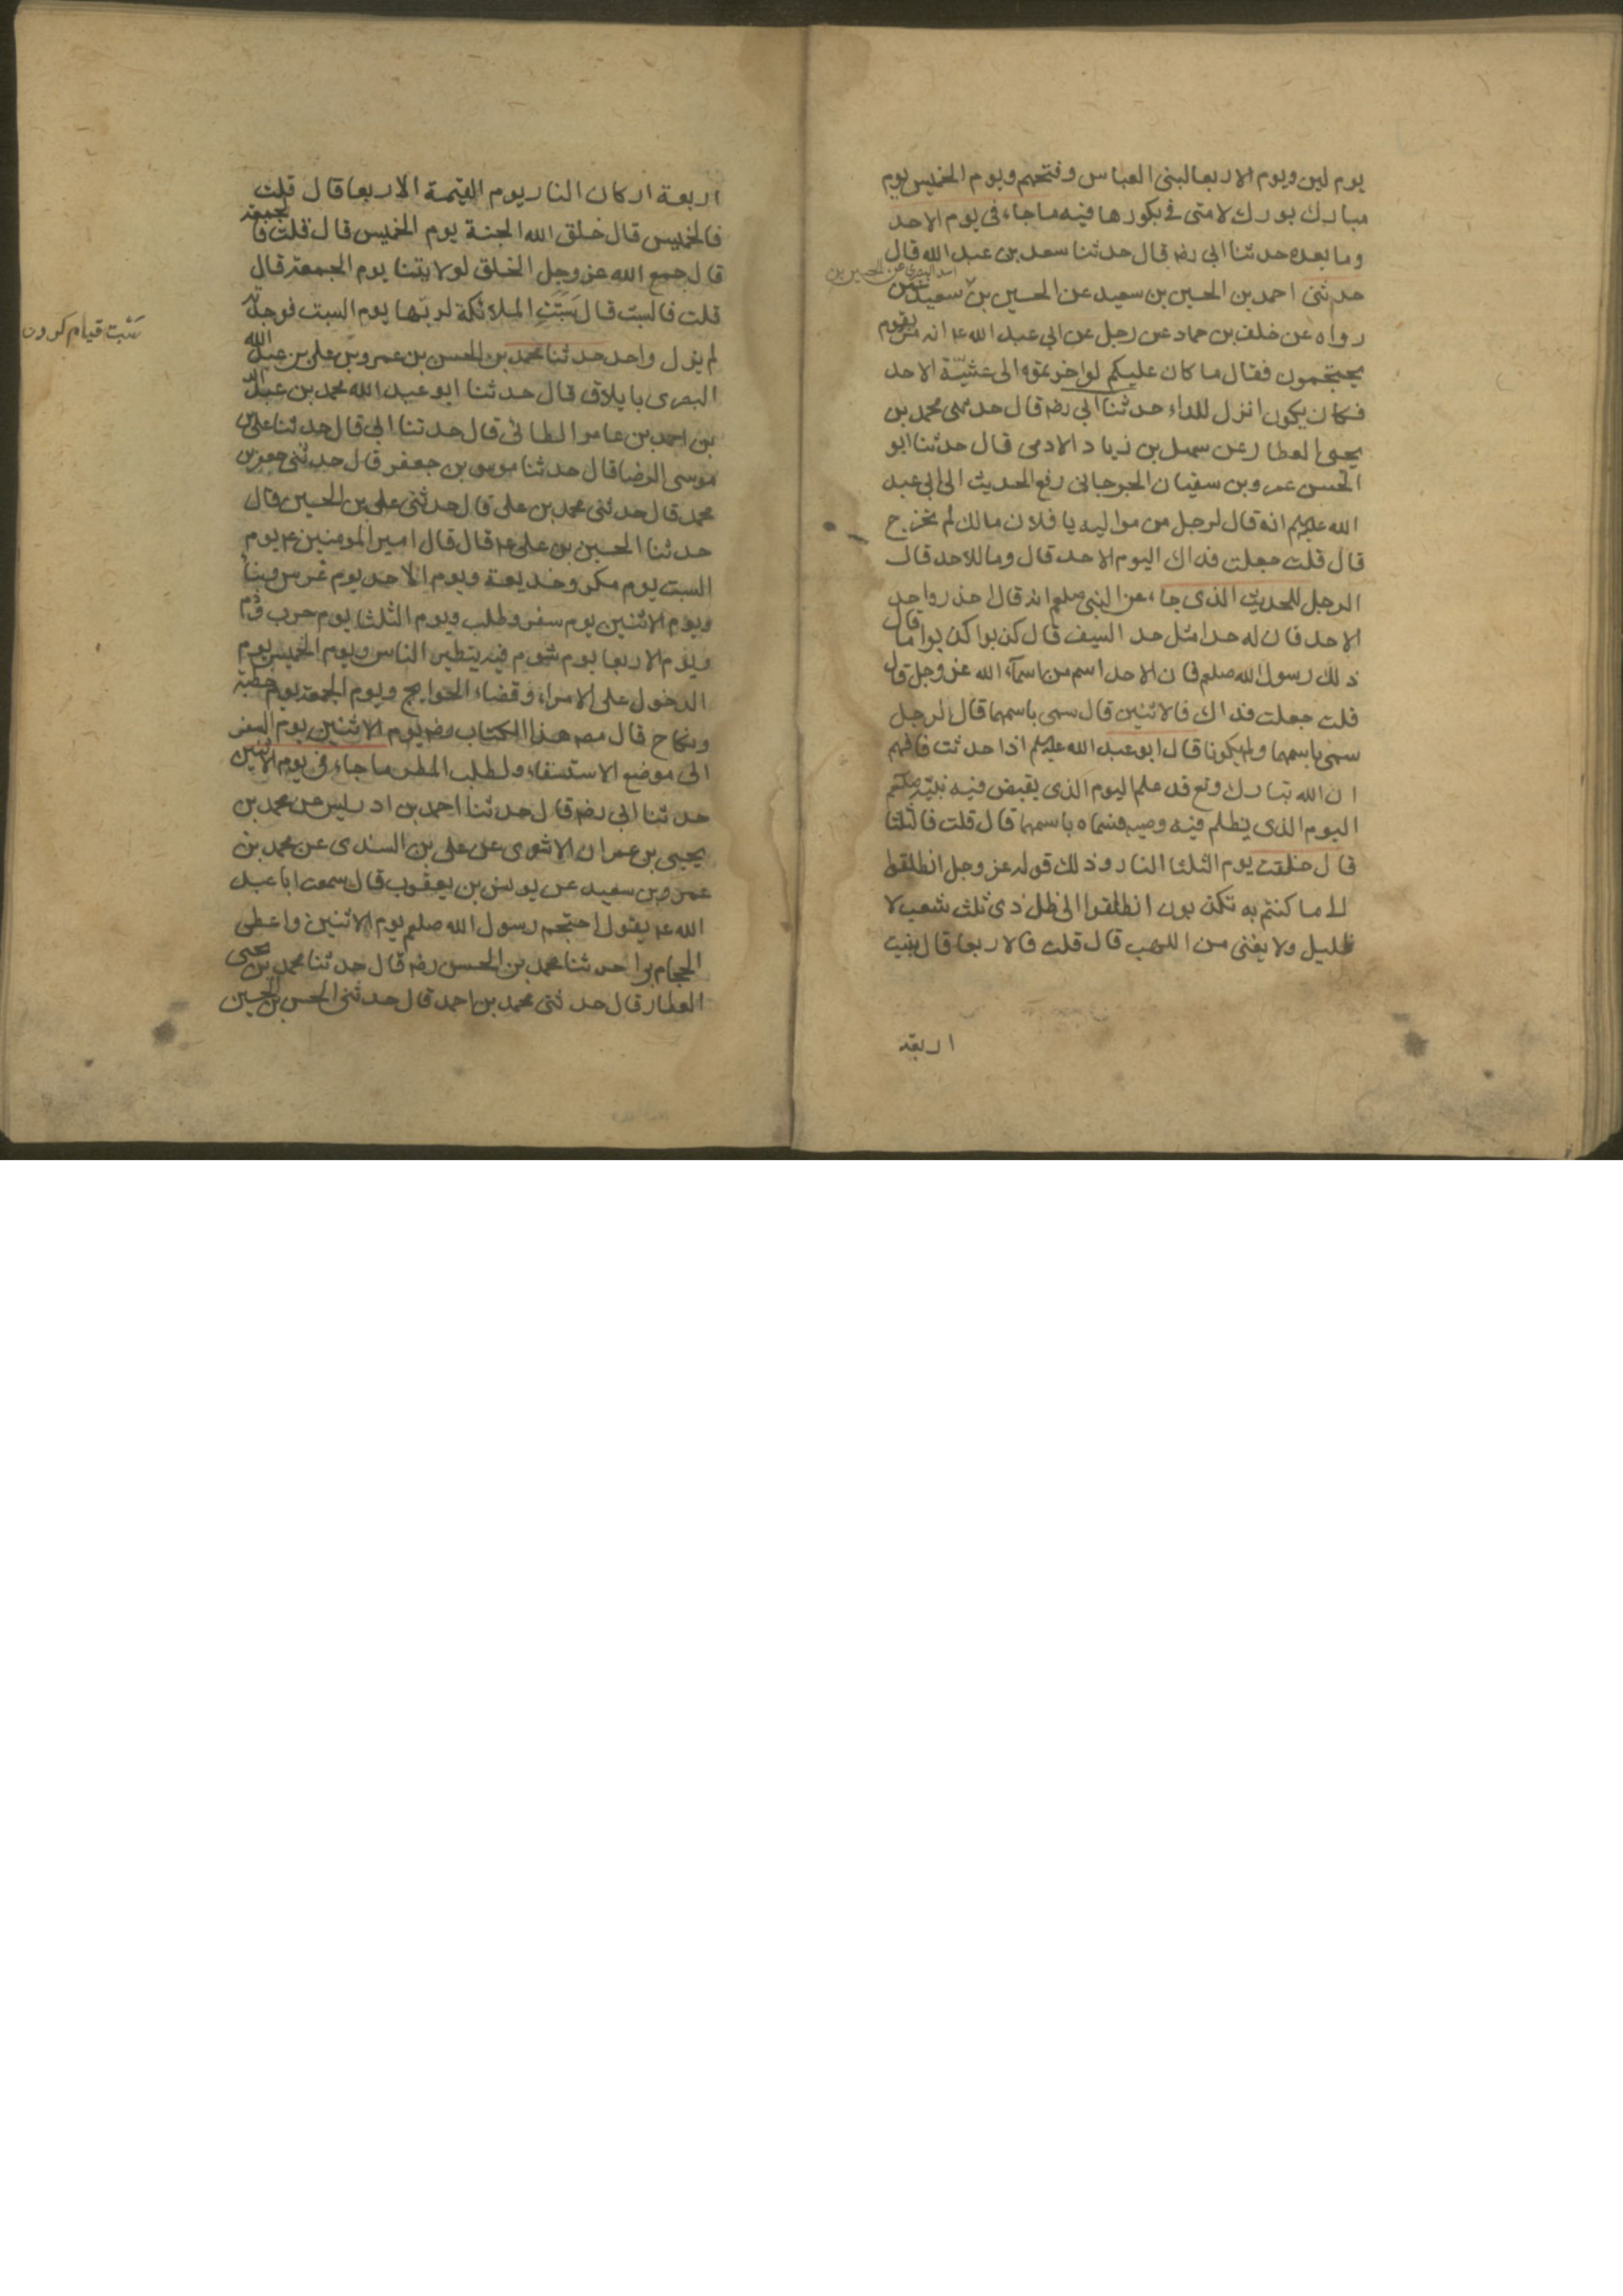 يوم لين ويوم الاربعا لبنى العباس وفتحهم ويوم الخميس يوم
مبارك بورك لامتى فى بكورها فيه ما جاء فى يوم الاحد
وما بعده حدثنا ابى رضه قال حدثنا سعد بن عبد الله قال
حدثنى احمد بن الحسين بن سعيد عن الحسين بن سعيد عمن
اسد البصرى عن الحسين بن
رواه عن خلف بن حماد عن رجل عن ابى عبد الله ع انه مر بقوم
يحتجمون فقال ما كان عليكم لو اخرتموه الى عشيّة الاحد
فكان يكون انزل للداء حدثنا ابى رضه قال حدثنى محمد بن
يحيى العطار عن سهل بن زياد الادمى قال حدثنا ابو
الحسن عمرو بن سفيان الجرجانى رفع الحديث الى ابى عبد
الله عليلم انه قال لرجل من مواليه يا فلان مالك لم تخرج
قال قلت جعلت فداك اليوم الاحد قال وما للاحد قال
الرجل للحديث الذى جاء عن النبى صلعم انه قال احذروا حد
الاحد فان له حدا مثل حد السيف قال كذبوا كذبوا ما قال
ذلك رسول الله صلعم فان الاحد اسم من اسماء الله عز وجل قال
قلت جعلت فداك فالاثنين قال سمى باسمهما قال الرجل
سمى باسمهما ولم يكونا قال ابو عبد الله عليلم اذا حدثت فافهم
ان الله تبارك وتع قد علم اليوم الذى يقبض فيه نبيّه صلعم
اليوم الذى يظلم فيه وصيه فسماه باسمهما قال قلت فالثلثا
قال خلقت يوم الثلثا النار وذلك قوله عز وجل انطلقوا
الى ما كنتم به تكذبون انطلقوا الى ظل ذى ثلث شعب لا
ظليل ولا يغنى من اللهب قال قلت فالاربعا قال بنيت
اربعة
اربعة اركان النار يوم القيمة الاربعا قال قلت
فالخميس قال خلق الله الجنة يوم الخميس قال قلت فالجمعة
قال جمع الله عز وجل الخلق لولايتنا يوم الجمعة قال
قلت فالسبت قال سَبَتَتِ الملائكة لربّها يوم السبت فوجدته
سَبْت قيام كردن
لم يزل واحد حدثنا محمد بن الحسن بن عمرو بن على بن عبد الله
البصرى بايلاق قال حدثنا ابو عبد الله محمد بن عبد الله
بن احمد بن عامر الطائى قال حدثنا ابى قال حدثنا على بن
موسى الرضا قال حدثنا موسى بن جعفر قال حدثنى جعفر بن
محمد قال حدثنى محمد بن على قال حدثنى على بن الحسين قال
حدثنا الحسين بن على ع قال قال امير المومنين ع يوم
السبت يوم مكر وخديعة ويوم الاحد يوم غرس وبناء
ويوم الاثنين يوم سفر وطلب ويوم الثلثا يوم حرب ودم
ويوم الاربعا يوم شوم فيه يتطير الناس ويوم الخميس يوم
الدخول على الامراء وقضاء الحوايج ويوم الجمعة يوم خطبة
ونكاح قال مصـ هذا الكتاب رضه يوم الاثنين يوم السفر
الى موضع الاستسقاء ولطلب المطر ما جاء فى يوم الاثنين
حدثنا ابى رضه قال حدثنا احمد بن ادريس عن محمد بن
يحيى بن عمران الاشعرى عن على بن السندى عن محمد بن
عمرو بن سعيد عن يونس بن يعقوب قال سمعت ابا عبد
الله ع يقول احتجم رسول الله صلعم يوم الاثنين واعطى
الحجام برا حدثنا محمد بن الحسن رضه قال حدثنا محمد بن يحيى
العطار قال حدثنى محمد بن احمد قال حدثنى الحسن بن الحسين